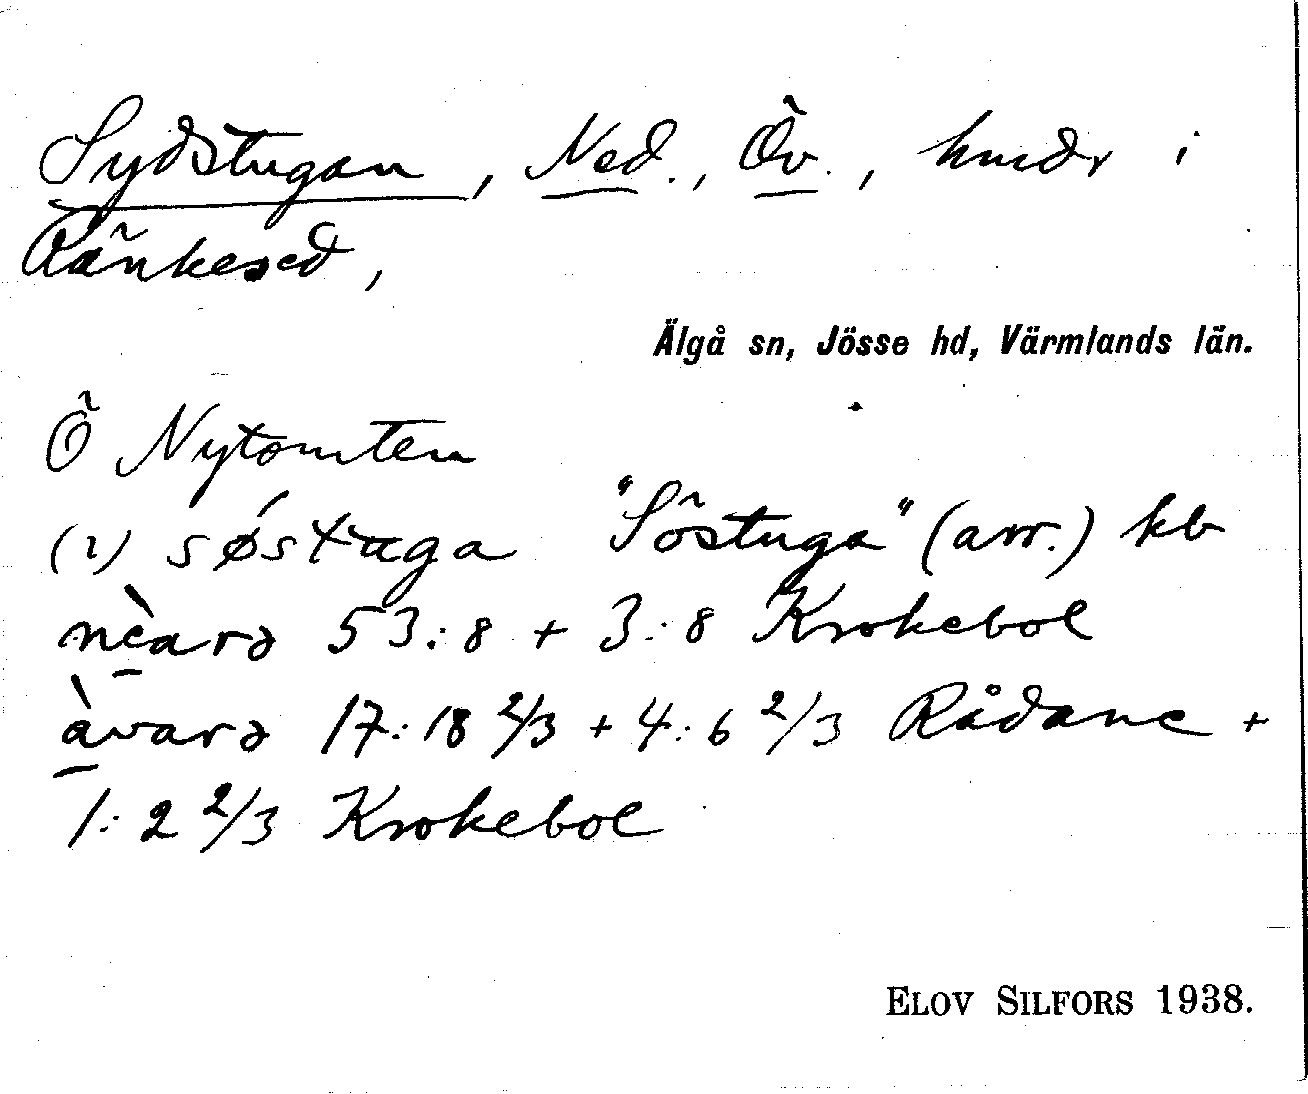 Sydstugan, Ned., Öv., hmdr i
Ränkesed,
Älgå sn, Jösse hd, Värmlands län.
Ö Nytomten
(i) søstuga "Söstuga" (arr.) hb
nèarə 53:8 + 3:8 Krokebol
àvarə 17:18 2/3 + 4:6 2/3 Rådane +
1:2 2/3 Krokebol
ELOV SILFORS 1938.